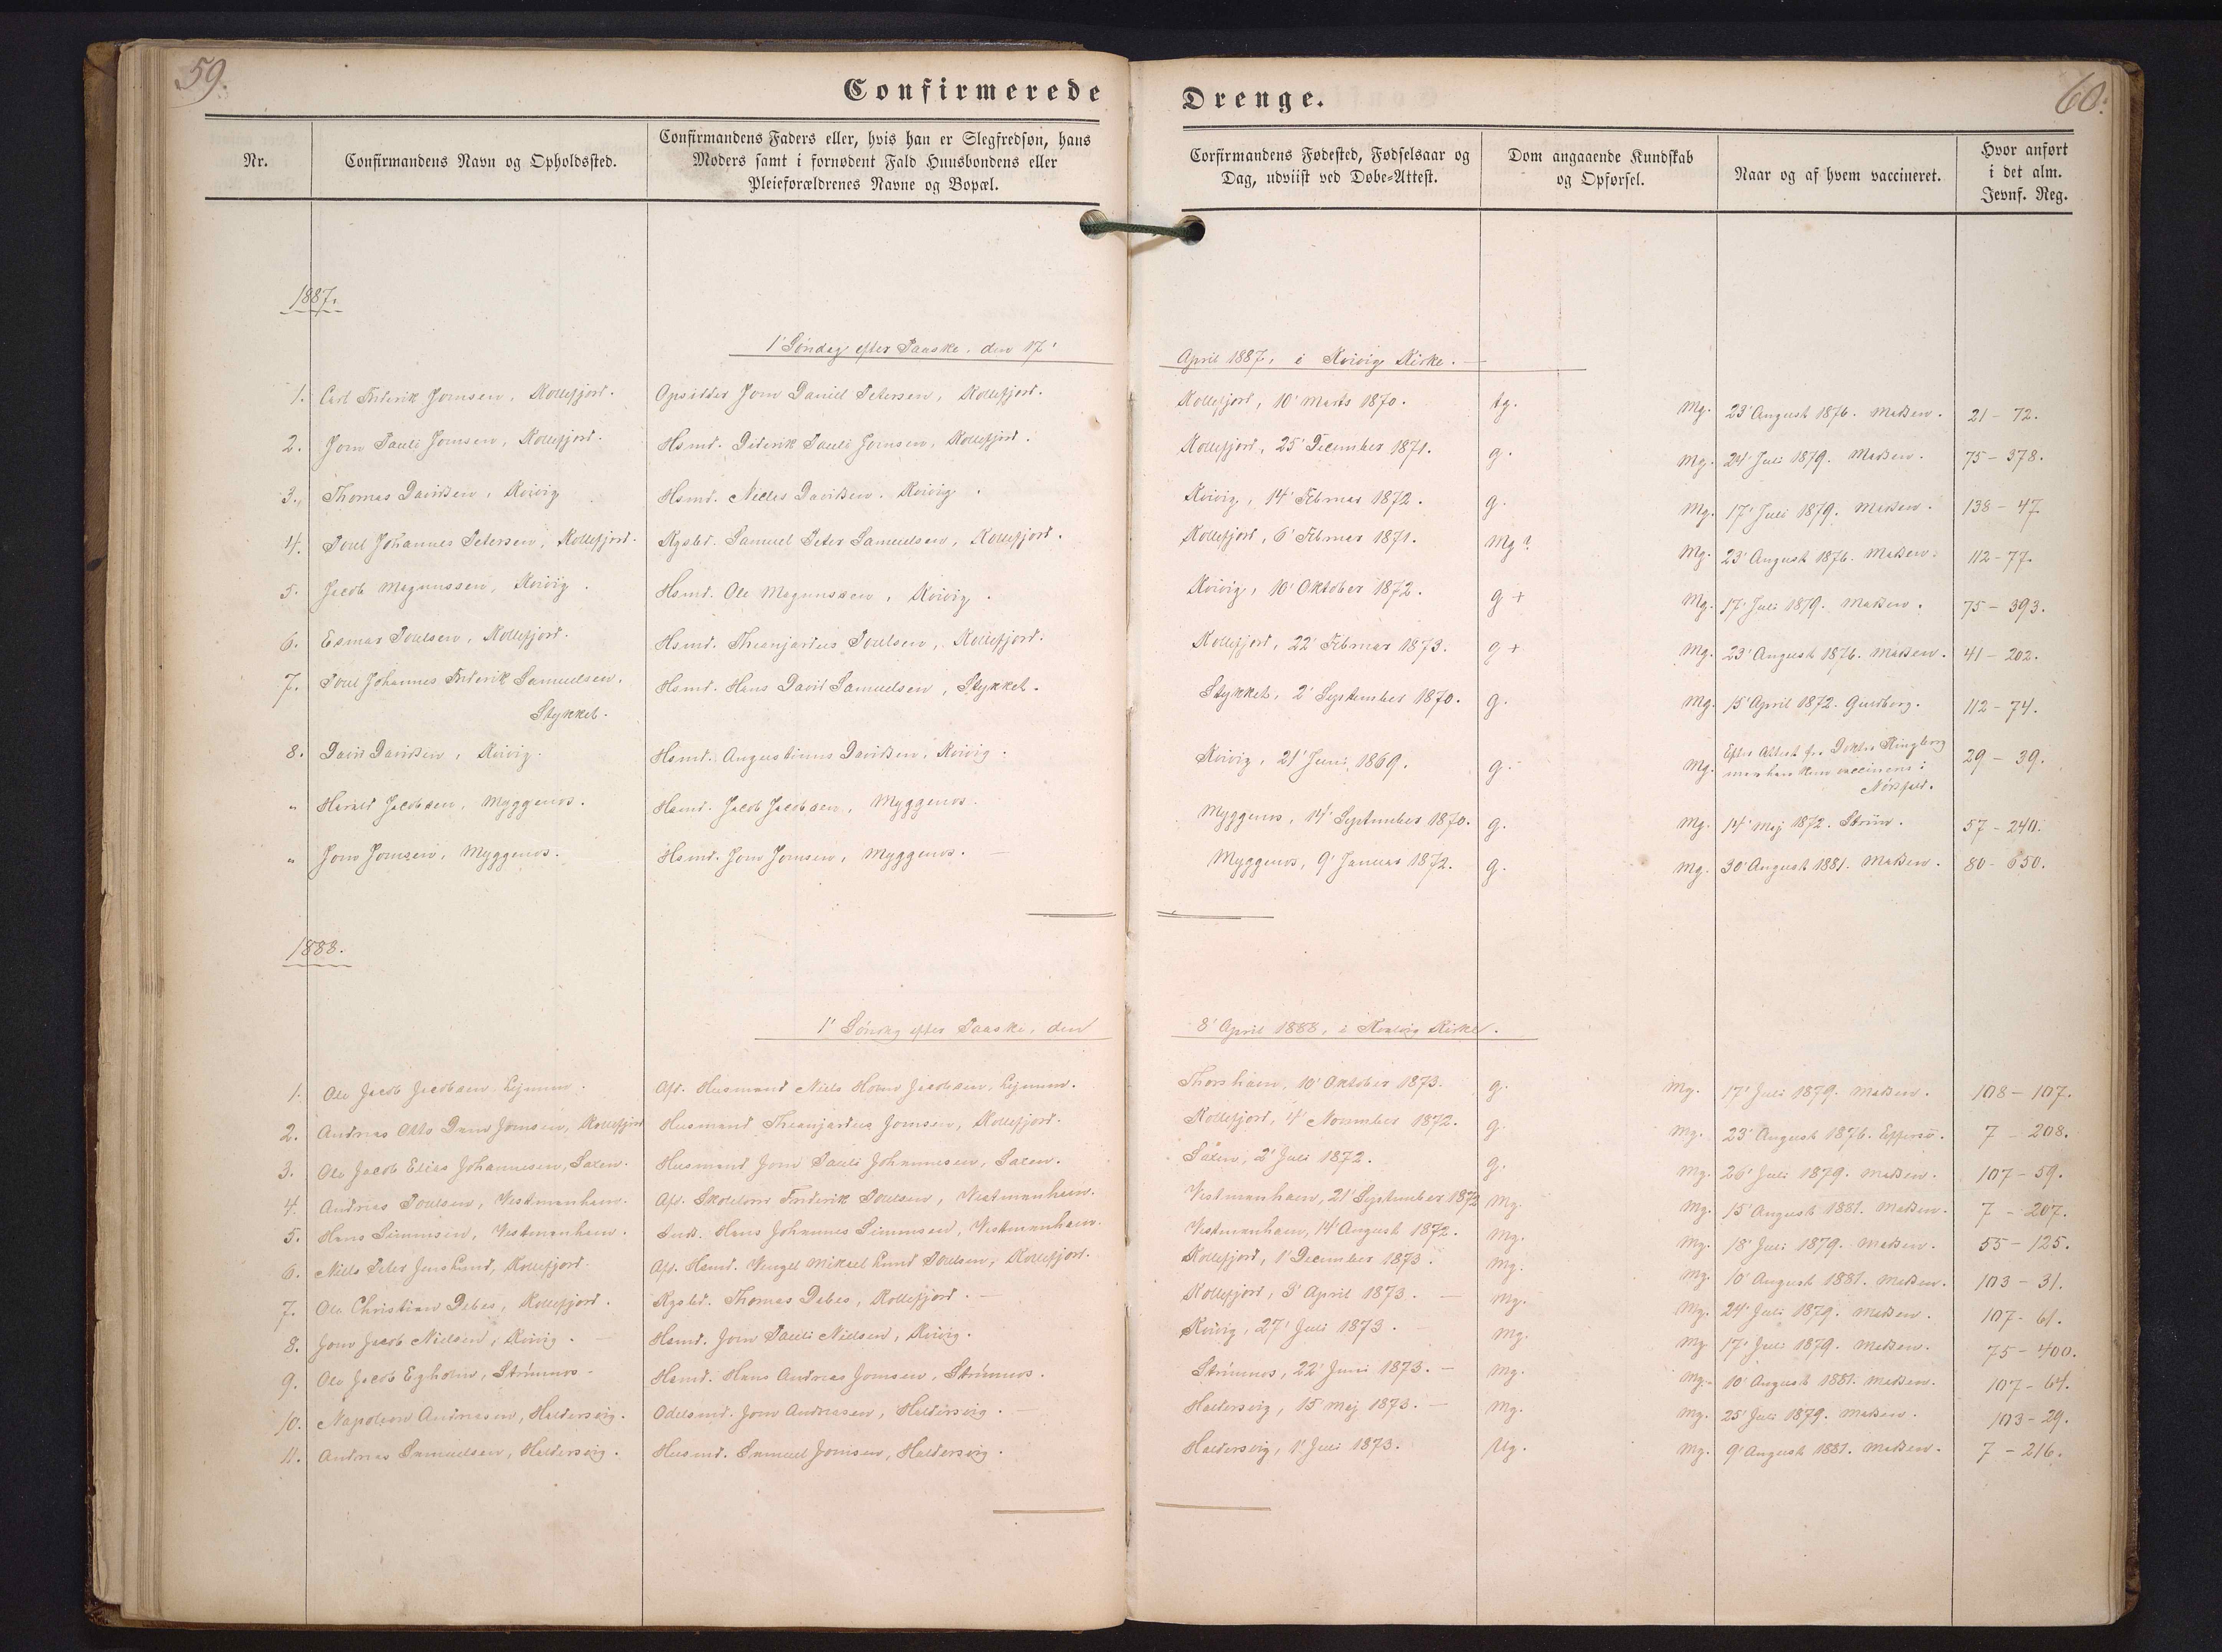 59.
60.
Confirmerede Drenge.
Nr. | Confirmandens Navn og Opholdssted. | Confirmandens Faders eller, hvis han er Slegfredsøn, hans Moders samt i fornødent Fald Huusbondens eller Pleieforældrenes Navne og Bopæl. | Corfirmandens Fødested, Fødselsaar og Dag, udviist ved Døbe-Attest. | Dom angaaende Kundskab og Opførsel. | Naar og af hvem vaccineret. | Hvor anført i det alm. Jevnf. Reg.
1887.
1' Søndag efter Paaske, den 17' April 1887, i Kvivig Kirke.
1. Carl Frederik Joensen, Kollefjord. Opsidder Joen Daniel Petersen, Kollefjord. Kollefjord, 10' Marts 1870. tg. Mg. 23' August 1876. Madsen. 21 - 72.
2. Joen Pauli Joensen, Kollefjord. Hsmd. Diderik Pauli Joensen, Kollefjord. Kollefjord, 25' December 1871. g. Mg. 24' Juli 1879. Madsen. 75 - 378.
3. Thomas Davidsen, Kvivig Hsmd. Niclas Davidsen. Kvivig. Kvivig, 14' Februar 1872. g. Mg. 17' Juli 1879. Madsen. 138 - 47
4. Poul Johannes Petersen, Kollefjord. Kgsbd. Samuel Peter Samuelsen, Kollefjord. Kollefjord, 6' Februar 1871. Mg? Mg. 23' August 1876. Madsen. 112 - 77.
5. Jacob Magnussen, Kvivig. Hsmd. Ole Magnussen, Kvivig. Kvivig, 10' Oktober 1872. g + Mg. 17' Juli 1879. Madsen. 75 - 393.
6. Esmar Poulsen, Kollefjord. Hsmd. Thranjardus Poulsen, Kollefjord. Kollefjord, 22' Februar 1873. g + Mg. 23' August 1876. Madsen. 41 - 202.
7. Poul Johannes Frederik Samuelsen, Hsmd. Hans David Samuelsen, Stykket. Stykket, 2' September 1870. g. Mg. 15' April 1872. Guldborg. 112 - 74.
Stykket.
8. David Davidsen, Kvivig. Hsmd. Augustinus Davidsen, Kvivig. Kvivig, 21' Juni 1869. g. Mg. Efter Attest fra Doktor Ringberg 29 - 39.
han kun vaccineres i
" Harald Jacobsen, Myggenæs. Hsmd. Jacob Jacobsen, Myggenæs. Myggenæs, 14' September 1870. g. Mg. 14' Maj 1872. 57 - 240.
" Joen Joensen, Myggenæs. Hsmd. Joen Joensen, Myggenæs. Myggenæs, 9' Januar 1872. g. Mg. 30' August 1881. Madsen. 80 - 650.
1888.
1' Søndag efter Paaske, den 8' April 1888, i Kvalvig Kirke.
1. Ole Jacob Jacobsen, Lejnum. Afd. Husmand Niels Jacobsen, Lejnum. Thorshavn, 10' Oktober 1873. g. Mg. 17' Juli 1879. Madsen. 108 - 107.
2. Andreas Otto Joensen, Kollefjord Husmand Thranjardus Joensen, Kollefjord. Kollefjord, 4' November 1872. g. Mg. 23' August 1876. Effersø. 7 - 208.
3. Ole Jacob Elias Johannesen, Saxen. Husmand Joen Pauli Johannesen, Saxen. Saxen, 2' Juli 1872. g. Mg. 26' Juli 1879. Madsen. 107 - 59.
4. Andreas Poulsen, Vestmanhavn. Afd. Skolelærer Frederik Poulsen, Vestmanhavn. Vestmanhavn, 21' September 1872 Mg. Mg. 15' August 1881. Madsen. 7 - 207.
5. Hans Simonsen, Vestmanhavn. Hans Johannes Simonsen, Vestmanhavn. Vestmanhavn, 14' August 1872. Mg. Mg. 18' Juli 1879. Madsen. 55 - 125.
6. Niels Peter Jens Lund, Kollefjord. Afd. Hsmd. Vengel Mikael Lund Poulsen, Kollefjord. Kollefjord, 1' December 1873. Mg. Mg. 10' August 1881. Madsen. 103 - 31.
7. Ole Christian Debes, Kollefjord. Kgsbd. Thomas Debes, Kollefjord. Kollefjord, 3' April 1873. Mg. Mg. 24' Juli 1879. Madsen. 107 - 61.
8. Joen Jacob Nielsen, Kvivig. Hsmd. Joen Pauli Nielsen, Kvivig. Kvivig, 27' Juli 1873. Mg. Mg 17' Juli 1879. Madsen. 75 - 400.
9. Ole Jacob Egholm, Strømnæs. Hsmd. Hans Andreas Joensen, Strømnæs. Strømnæs, 22' Juni 1873. Mg. Mg. 10' August 1881. Madsen. 107 - 64.
10. Napoleon Andreasen, Haldersvig. Odelsmd. Joen Andreasen, Haldersvig. Haldersvig, 15' Maj 1873. Mg. Mg. 25' Juli 1879. Madsen. 103 - 29.
11. Andreas Samuelsen, Haldersvig. Husmd. Samuel Joensen, Haldersvig. Haldersvig, 1' Juli 1873. Ug. Mg. 9' August 1881. Madsen. 7 - 216.